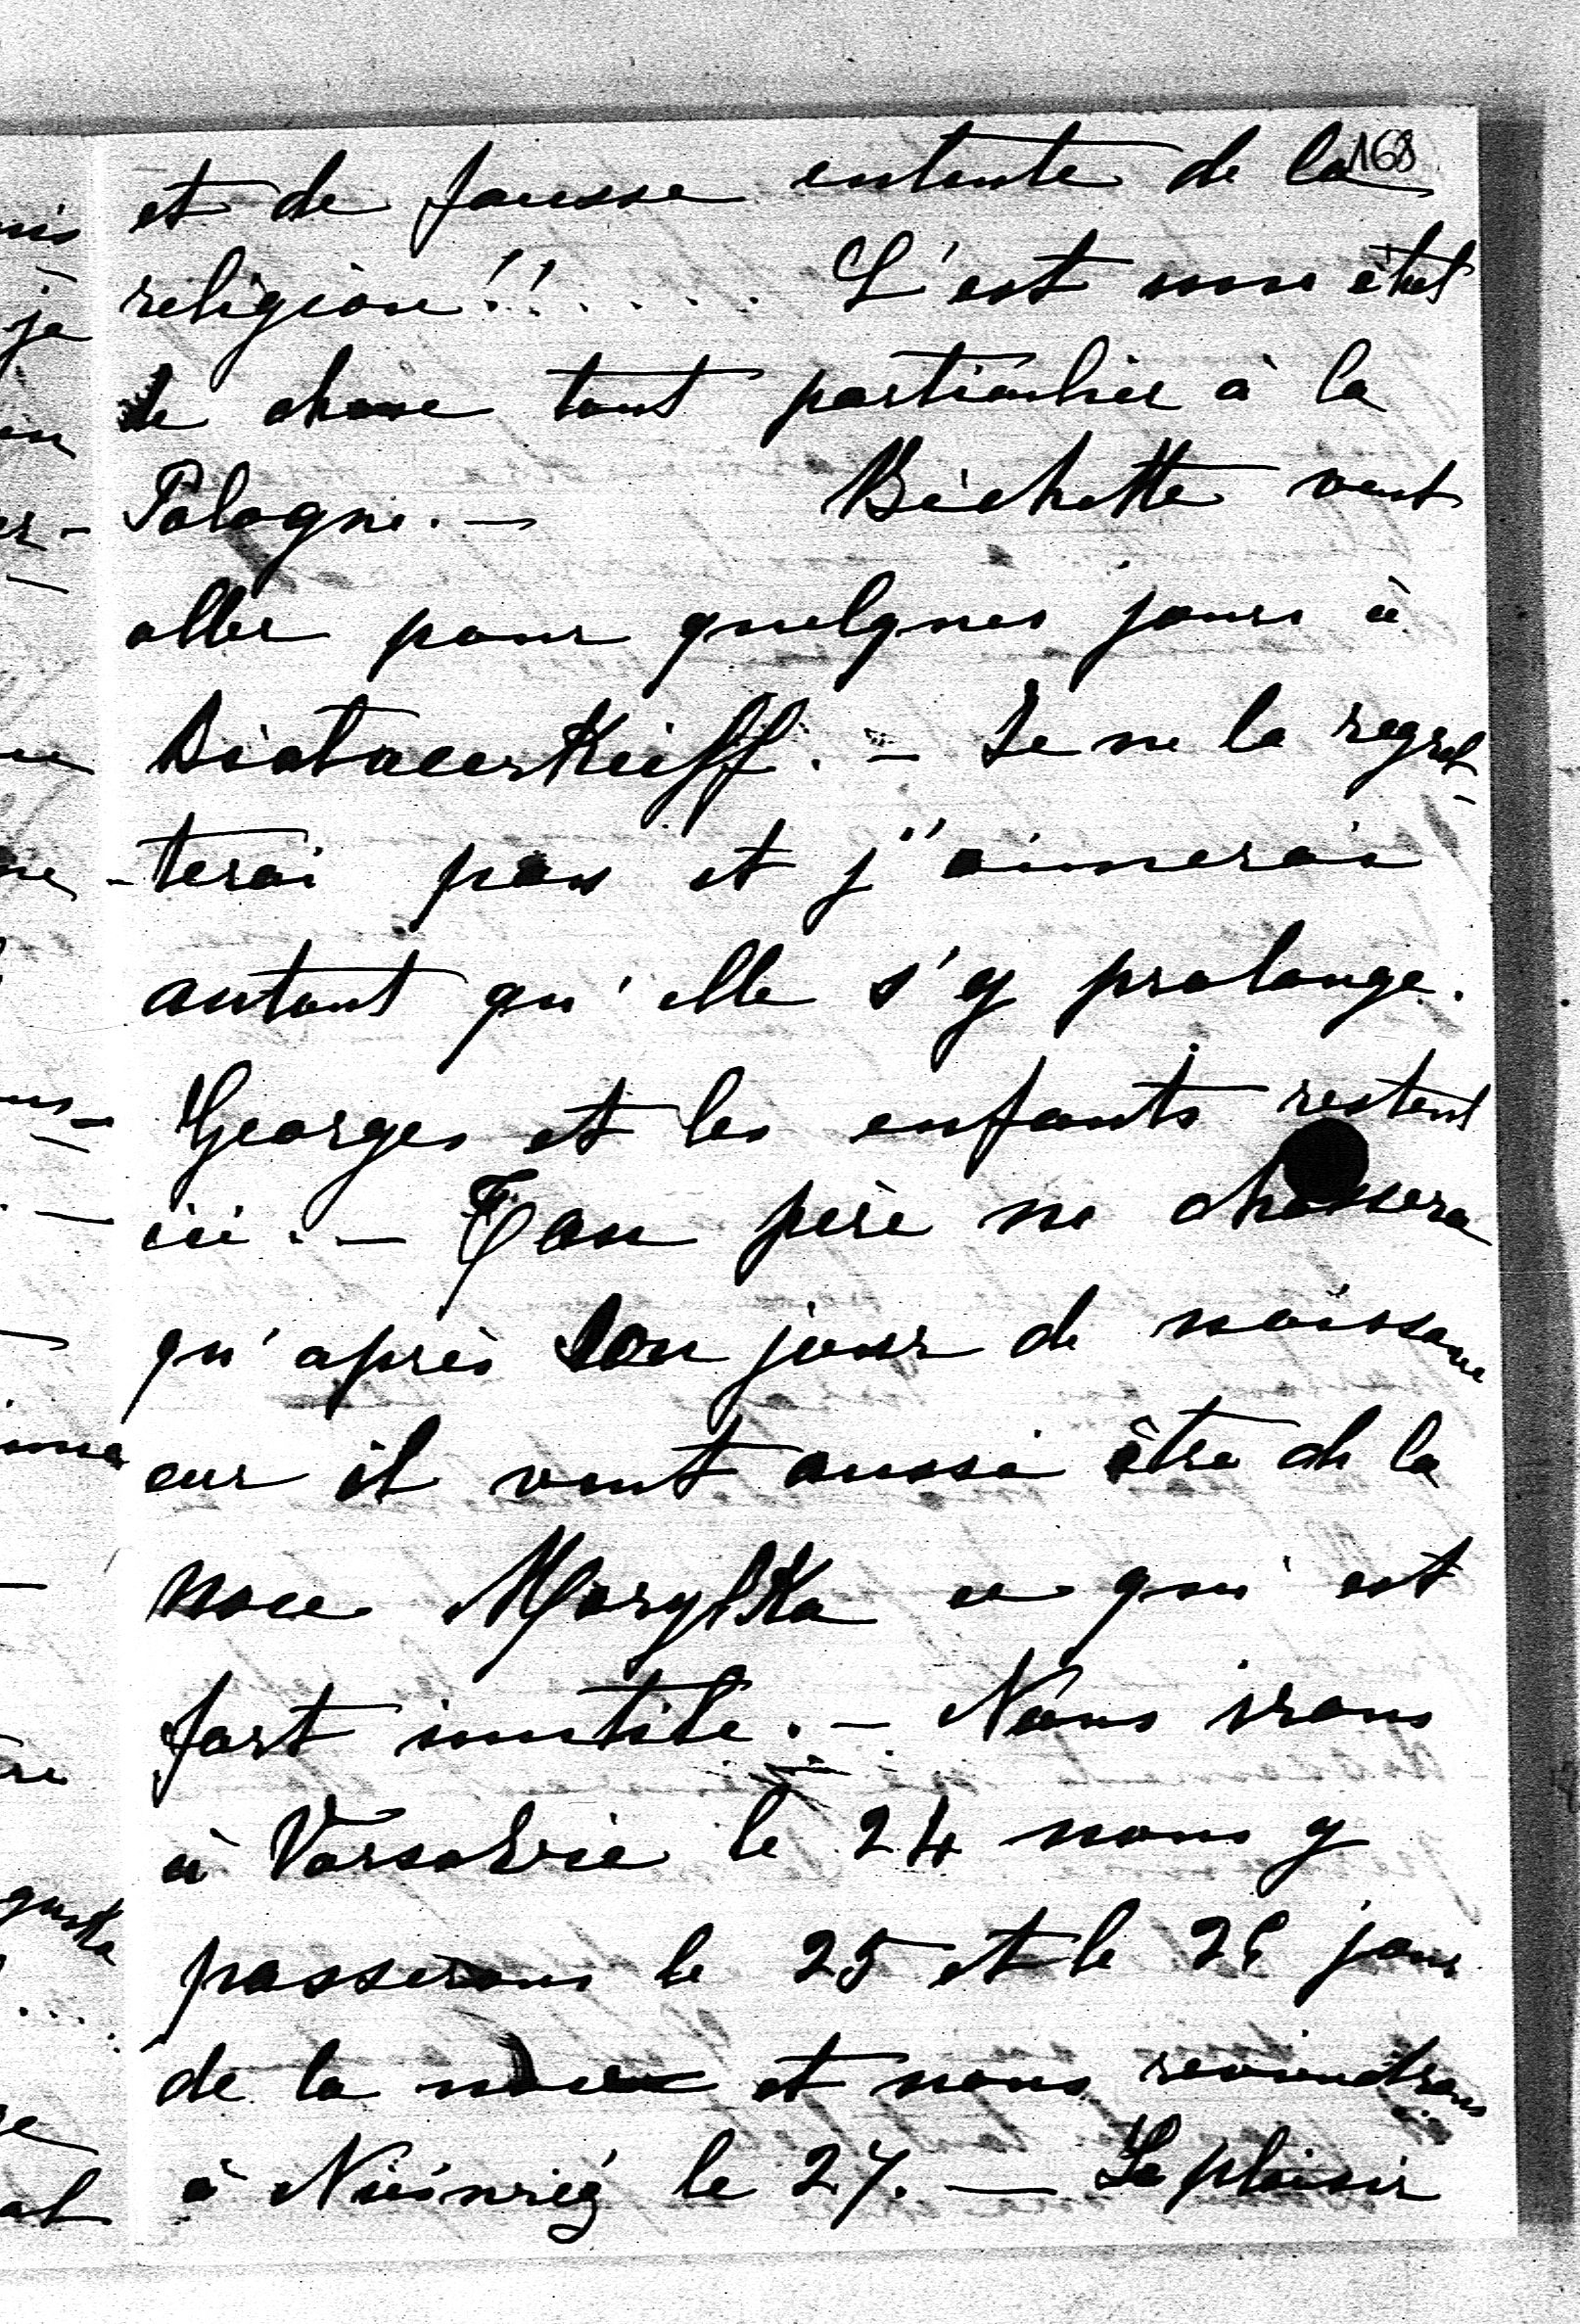 168
et de fausse entente de la
religion!!..... C'est un état
de chose tout particulier à la
Pologne. — Bichette veut
aller pour quelques jours à
Biatacerkieff. — Je ne la regret-
-terai pas et j'aimerais
autant qu'elle s'y prolonge.
Georges et les enfants restent
ici. — Ton père ne chassera
qu'après son jour de naissance
car il veut aussi être de la
noce Marylka ce qui est
fort inutile. — Nous irons
à Varsovie le 24 nous y
passerons le 25 et le 26 jour
de la noce et nous reviendrons
à Nieśwież le 27. — Le plaisir